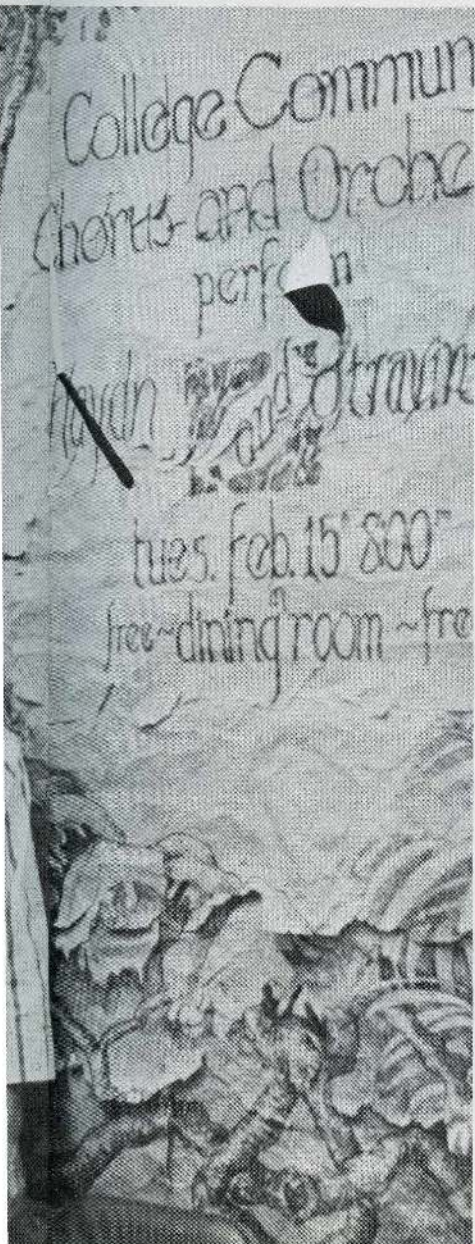 College Commun
Chorus and Orche
perf n
Haydn and Stravin
tues. feb. 15 800
free~dining room ~fre